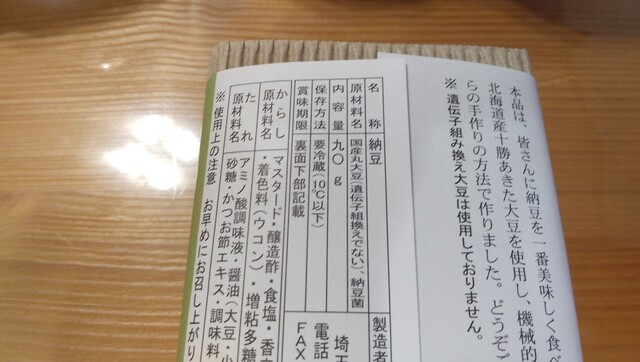 本品は、皆さんに納豆を一番美味しく食べ
北海道産十勝あきた大豆を使用し、機械的
らの手作りの方法で作りました。どうぞご
※遺伝子組み換え大豆は使用しておりません。
名称 納豆
原材料名 国産丸大豆(遺伝子組換えでない)、納豆菌
内容量 九〇g
保存方法 要冷蔵(10℃以下)
賞味期限 裏面下部記載
製造者
埼玉
電話
FAX
からし
原材料名 マスタード・醸造酢・食塩・香
・着色料(ウコン)・増粘多糖
たれ
原材料名 アミノ酸調味液・醤油(大豆・小
砂糖・かつお節エキス・調味料
※使用上の注意 お早めにお召し上がり